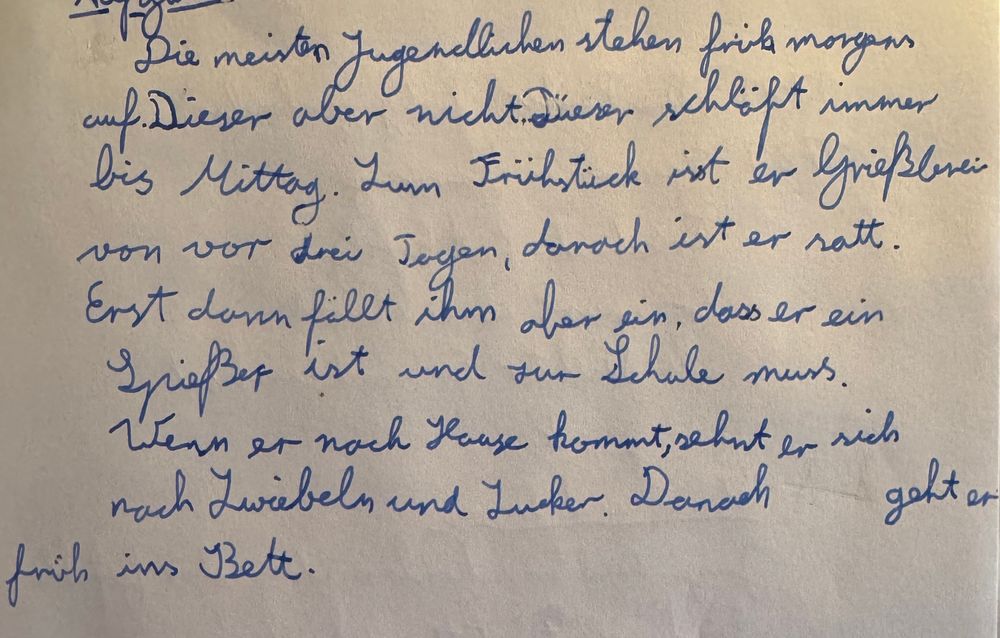 Die meisten Jugendlichen stehen früh morgens
auf. Dieser aber nicht. Dieser schläft immer
bis Mittag. Zum Frühstück isst er Grießbrei
von vor drei Tagen, danach ist er satt.
Erst dann fällt ihm aber ein, dass er ein
Spießer ist und zur Schule muss.
Wenn er nach Hause kommt, sehnt er sich
nach Zwiebeln und Zucker. Danach geht er
früh ins Bett.